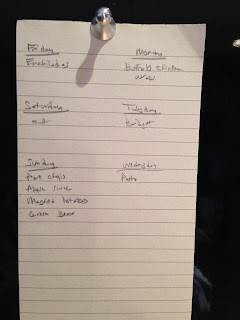 Friday
Enchiladas
Saturday
out
Sunday
Pork chops
Apple
Mashed potatoes
Green Beans
Monday
Buffalo chicken
Tuesday
Wednesday
Pasta